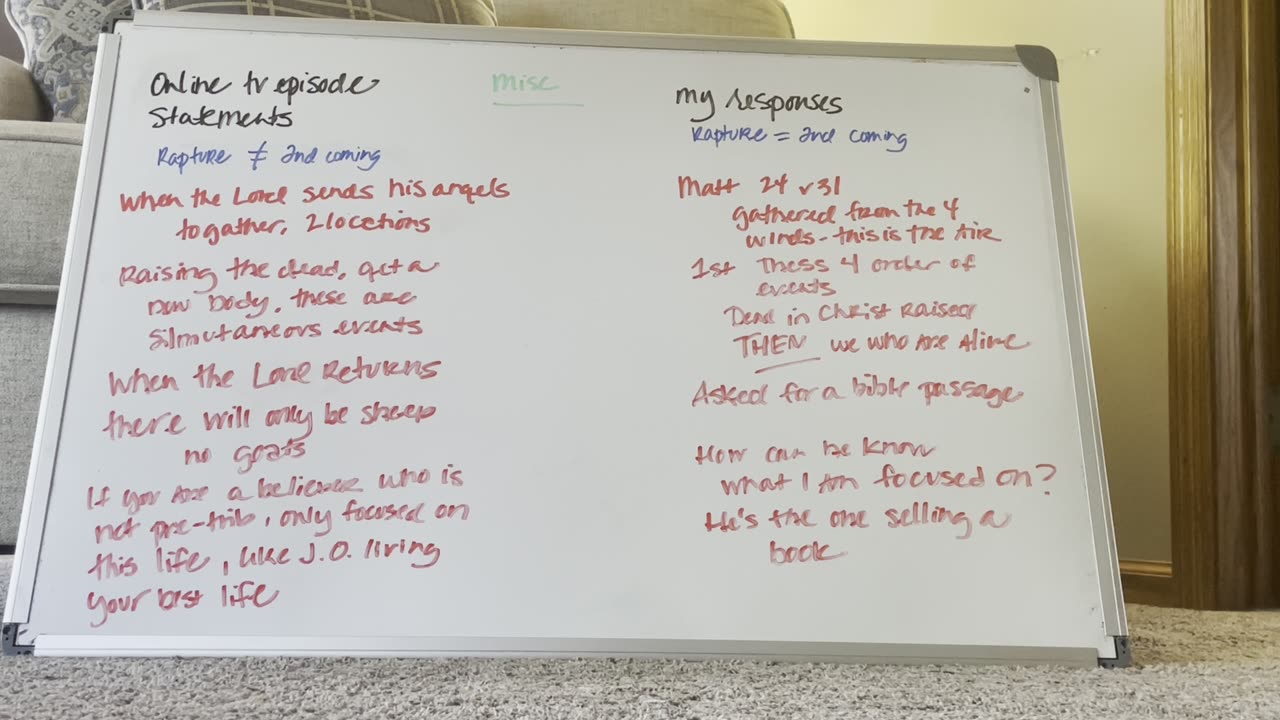 Online tv episode
Statements
Rapture ≠ 2nd coming
When the Lord sends his angels
to gather, 2 locations
Raising the dead, get a
new body, these are
Silmutaneous events
When the Lord Returns
there will only be sheep
no goats
If you are a believer who is
not pre-trib, only focused on
this life, like J.O. living
your best life
misc
My responses
Rapture = 2nd coming
Matt 24 v31
gathered from the 4
winds - this is the Air
1st Thess 4 order of
events
Dead in Christ Raised
THEN we who are Alive
Asked for a bible passage
How can he know
what I Am focused on?
He's the one selling a
book